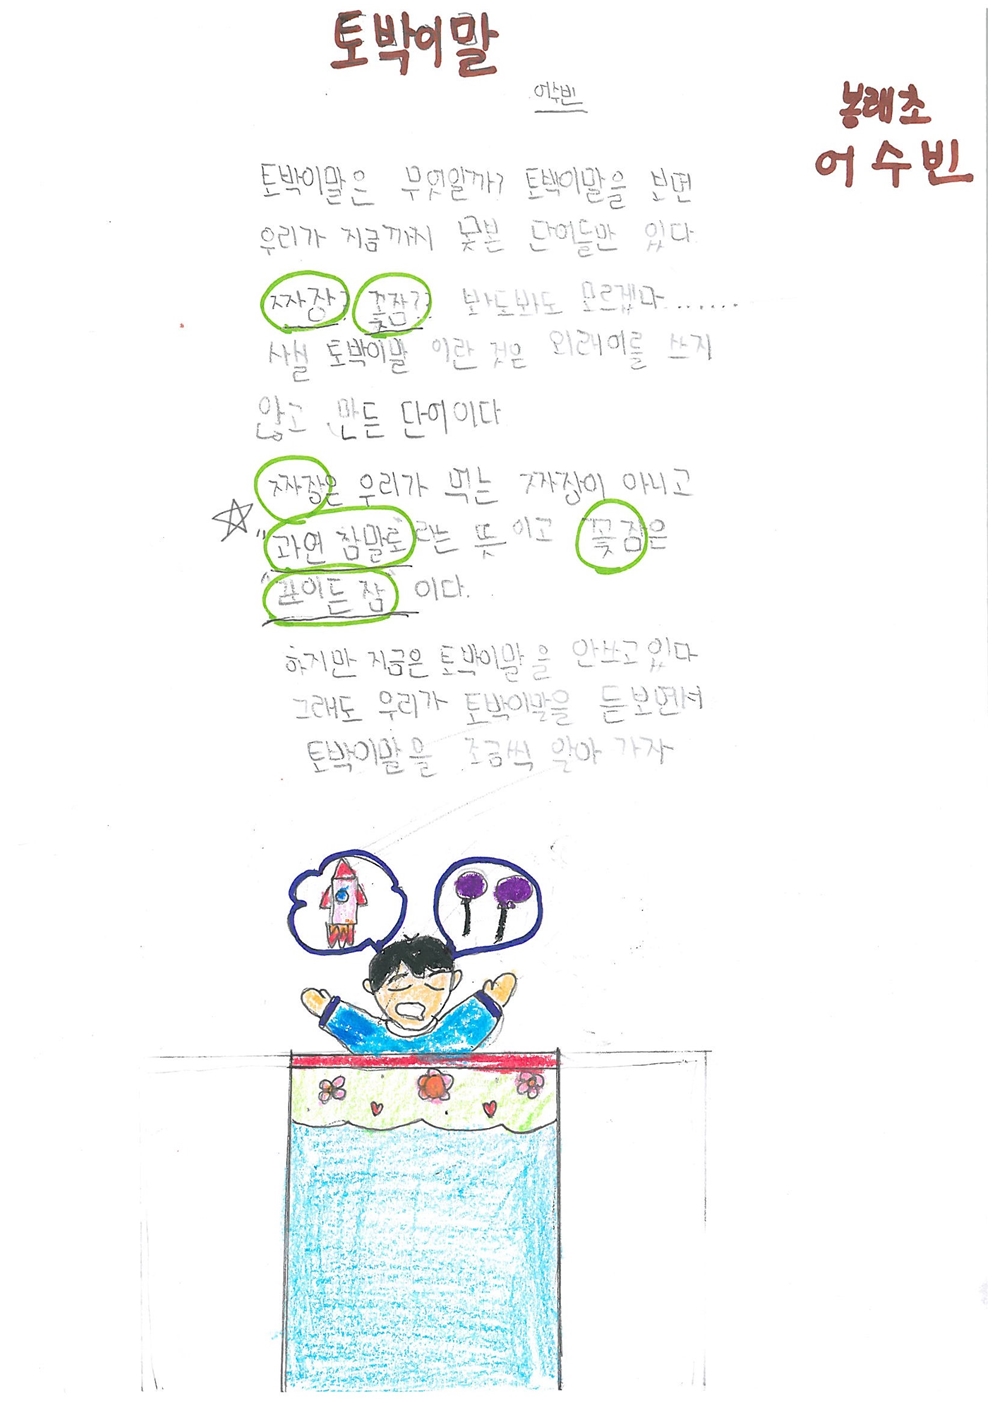 토박이말
어수빈
봉래초
어수빈
토박이말은 무엇일까? 토박이말을 보면
우리가 지금까지 못본 단어들만 있다
짜장? 꽃잠?? 봐도봐도 모르겠다.......
사실 토박이말 이란 것은 외래어를 쓰지
않고 만든 단어이다
짜장은 우리가 먹는 짜장이 아니고
"과연 참말로"라는 뜻이고 꽃잠은
"깊이든 잠" 이다.
하지만 지금은 토박이말을 안쓰고있다
그래도 우리가 토박이말을 듣보면서
토박이말을 조금씩 알아 가자